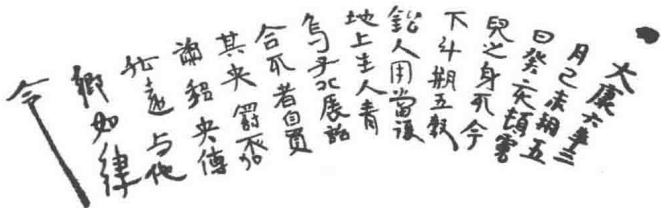 大康六年三
月己未朔五
日癸亥頓
兒之身死今
下斗瓶五穀
鈆人用當復
地上生人青
烏子北辰詔
令死者自受
其央罰不加
央傳
於遠与他
鄉如律
令